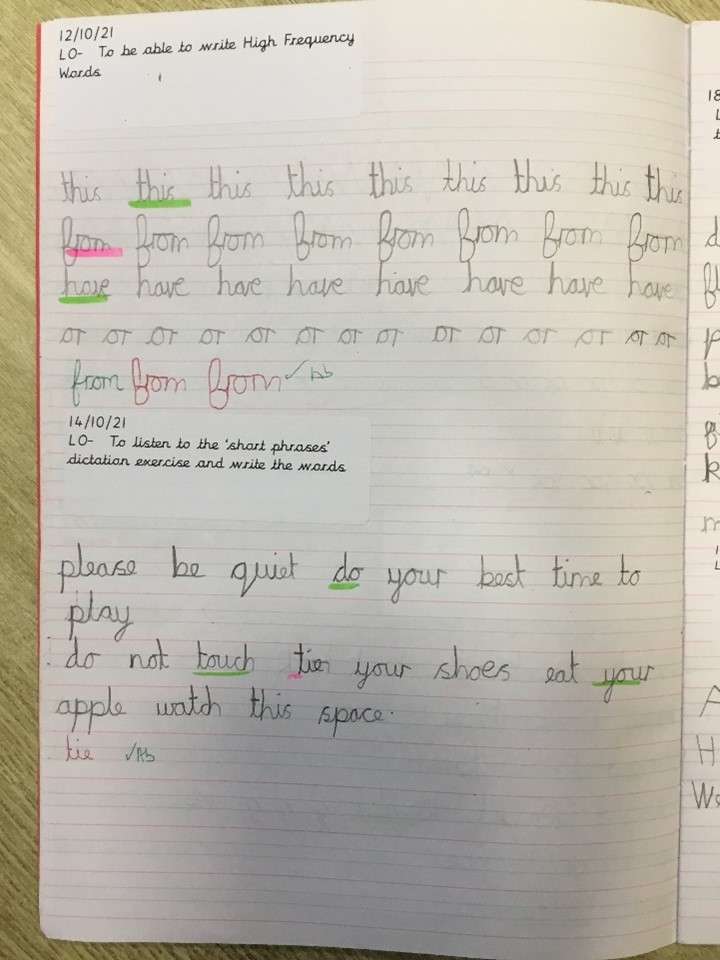 12/10/21
LO- To be able to write High Frequency
Words
this this this this this this this this this
from from from from from from from from
have have have have have have have have
or or or or or or or or or or or or or or
from from from ✓Ab
14/10/21
LO- To listen to the 'short phrases'
dictation exercise and write the words
please be quiet do your best time to
play
do not touch tien your shoes eat your
apple watch this space.
tie ✓Ab
18
L
t
d
f
p
b
g
k
m
L
A
H
We